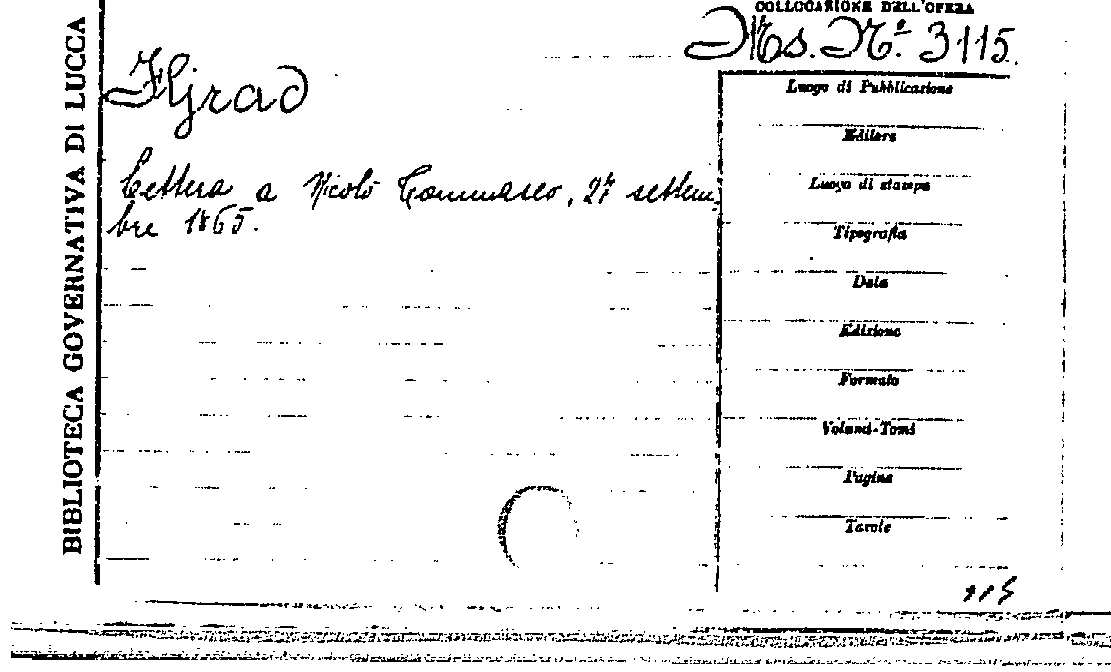 BIBLIOTECA GOVERNATIVA DI LUCCA
COLLOCAZIONE DELL'OPERA
Ms. N.º 3115.
Lettera a Nicolò Tommaseo, 27 settem-
bre 1865.
Luogo di Pubblicazione
Editore
Luogo di stampa
Tipografia
Data
Edizione
Formato
Volumi-Tomi
Pagine
Tavole